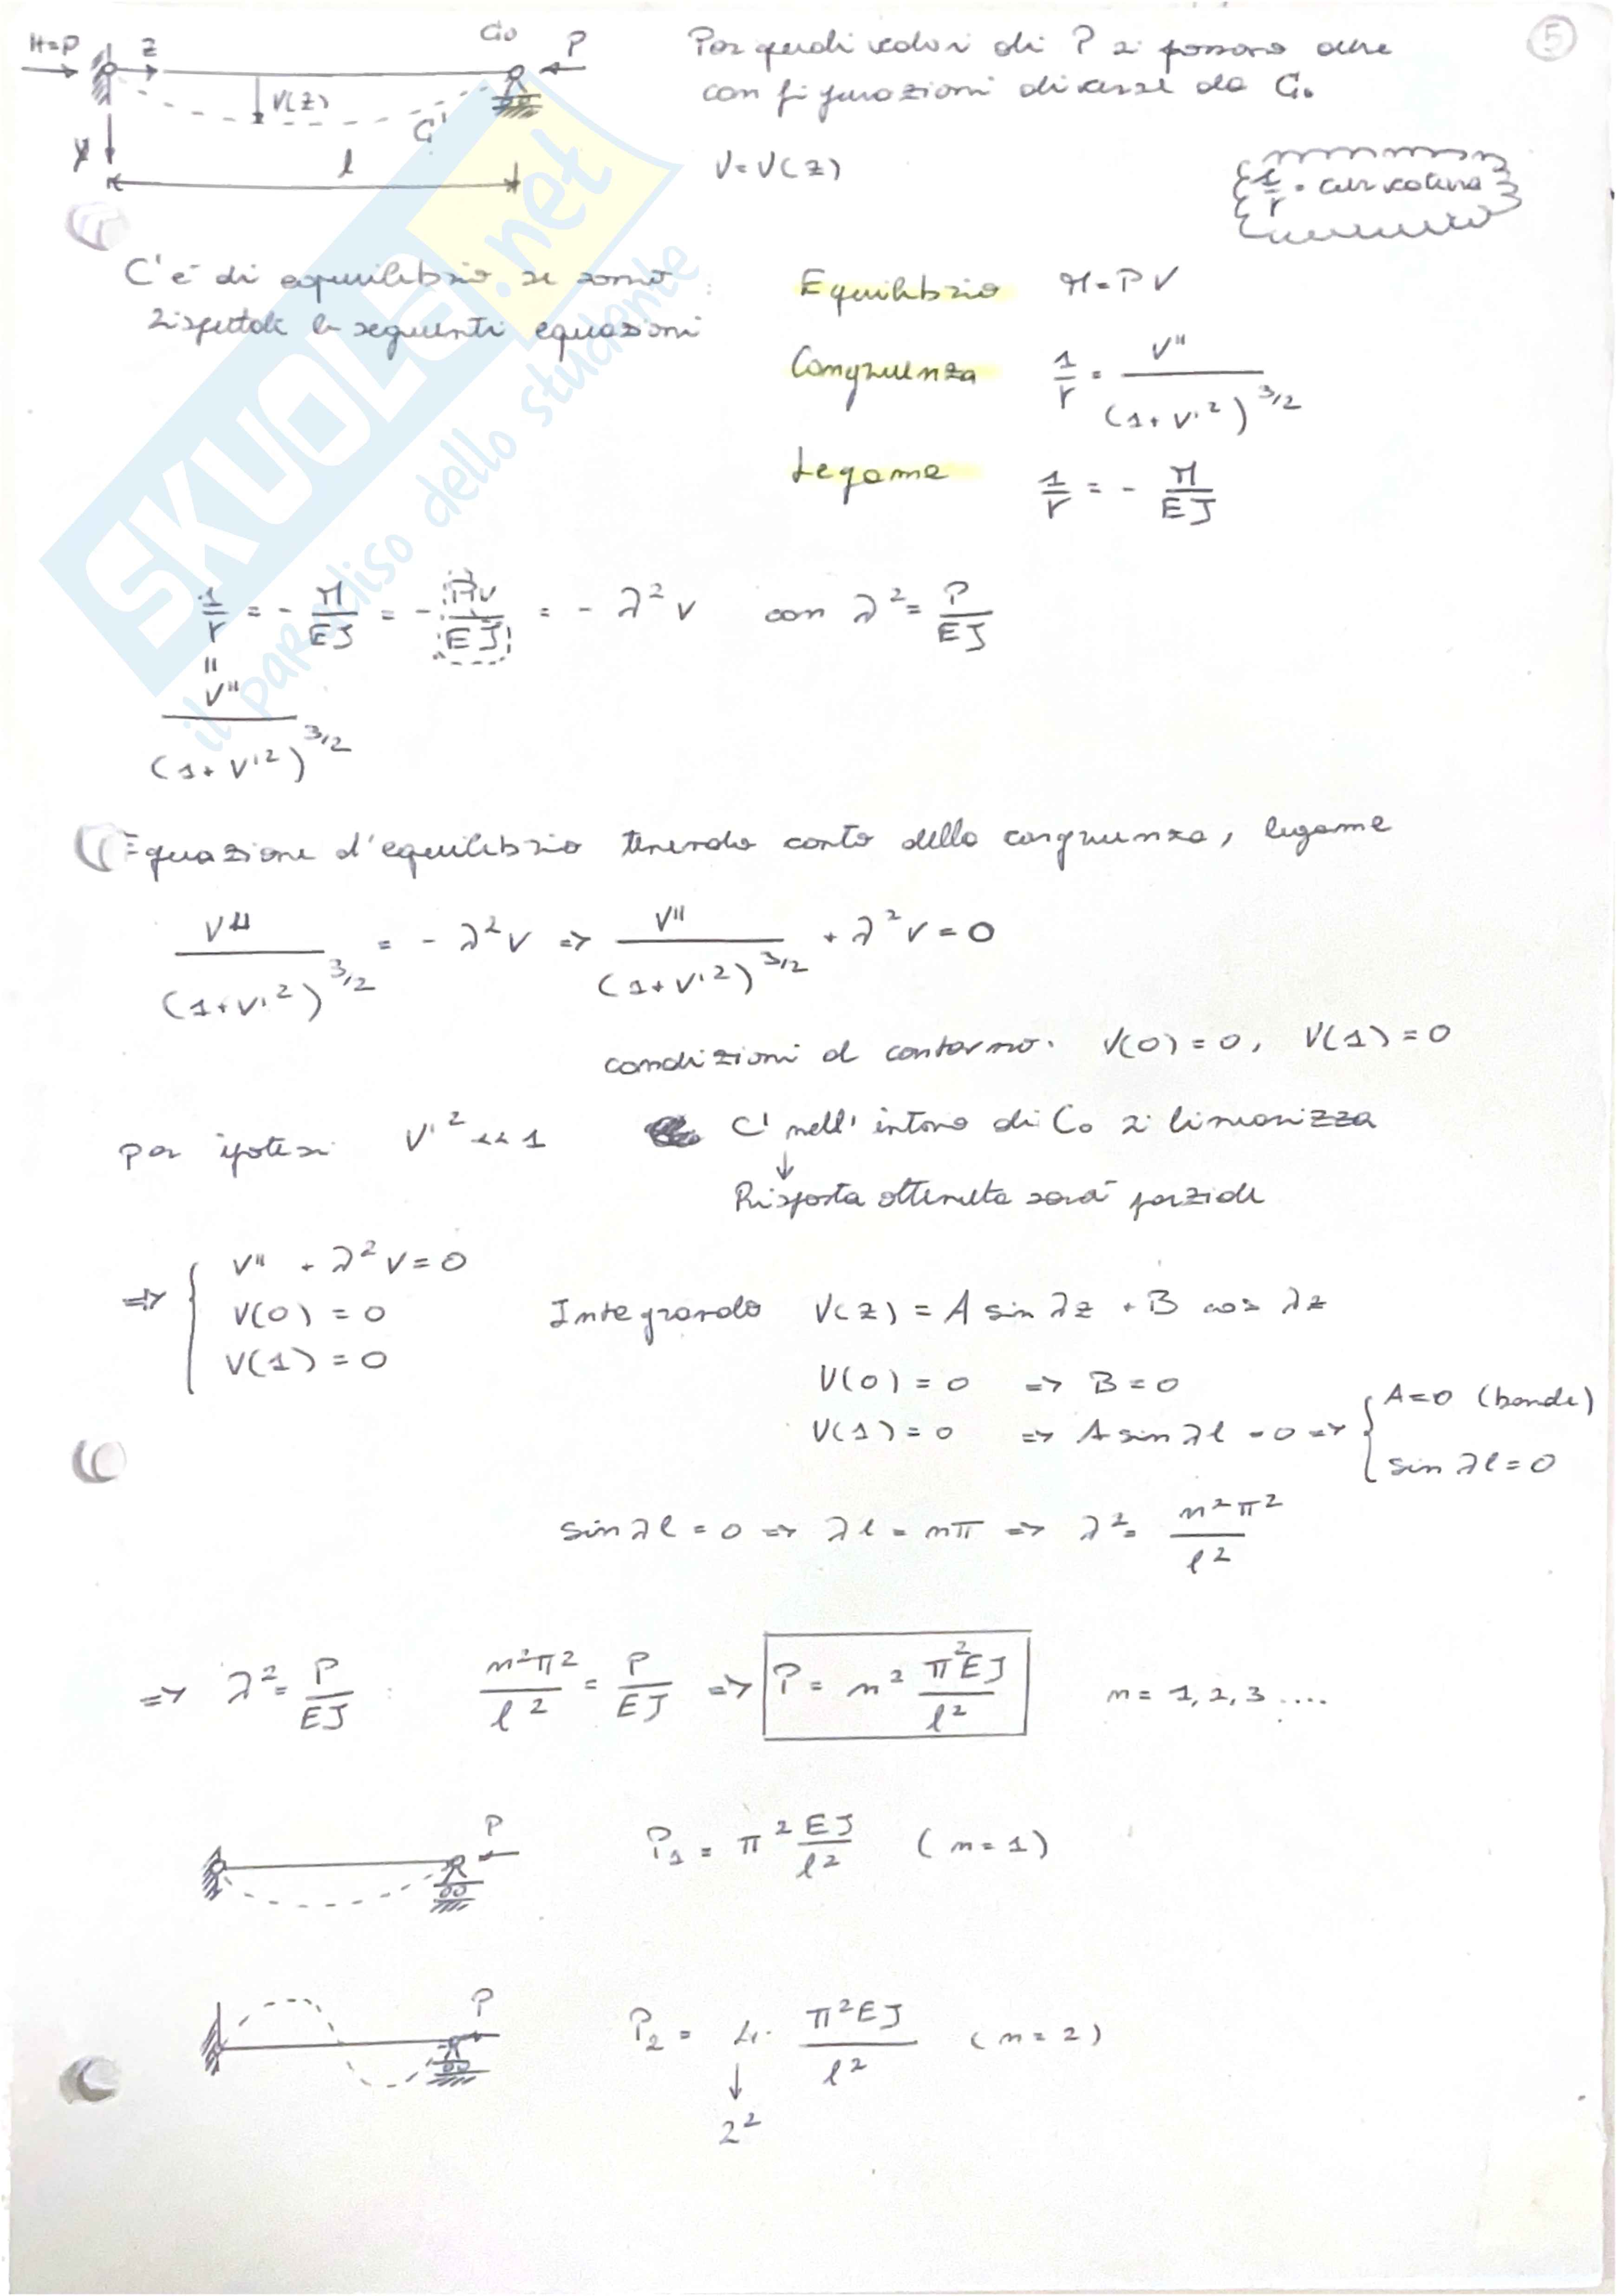 H=P
z
C₀
P
V(z)
C'
y
l
5
Per quali valori di P si possono avere
configurazioni diverse da C₀
V=V(z)
1/r = curvatura
C' è di equilibrio se sono
rispettate le seguenti equazioni
Equilibrio M=PV
Congruenza 1/r = V''/(1+V'²)^3/2
Legame 1/r = - M/EJ
1/r = - M/EJ = - Pv/EJ = - λ²v con λ² = P/EJ
=
V''/(1+V'²)^3/2
Equazione d'equilibrio tenendo conto della congruenza, legame
V''/(1+V'²)^3/2 = - λ²v => V''/(1+V'²)^3/2 + λ²v = 0
condizioni al contorno: V(0)=0, V(1)=0
per ipotesi V'² << 1
C' nell'intorno di C₀ si linearizza
↓
Risposta ottenuta sarà parziale
=> { V'' + λ²V=0
V(0) = 0
V(1) = 0
Integrando V(z) = A sin λz + B cos λz
V(0) = 0 => B=0
V(1) = 0 => A sin λl = 0 => { A=0 (banale)
sin λl = 0
sin λl = 0 => λl = nπ => λ² = n²π²/l²
=> λ² = P/EJ : n²π²/l² = P/EJ => P = n² π²EJ/l² n = 1, 2, 3 ....
P
P₁ = π² EJ/l² (n=1)
P
P₂ = 4· π²EJ/l² (n=2)
↓
2²
SKUOLA.net
il paradiso dello studente